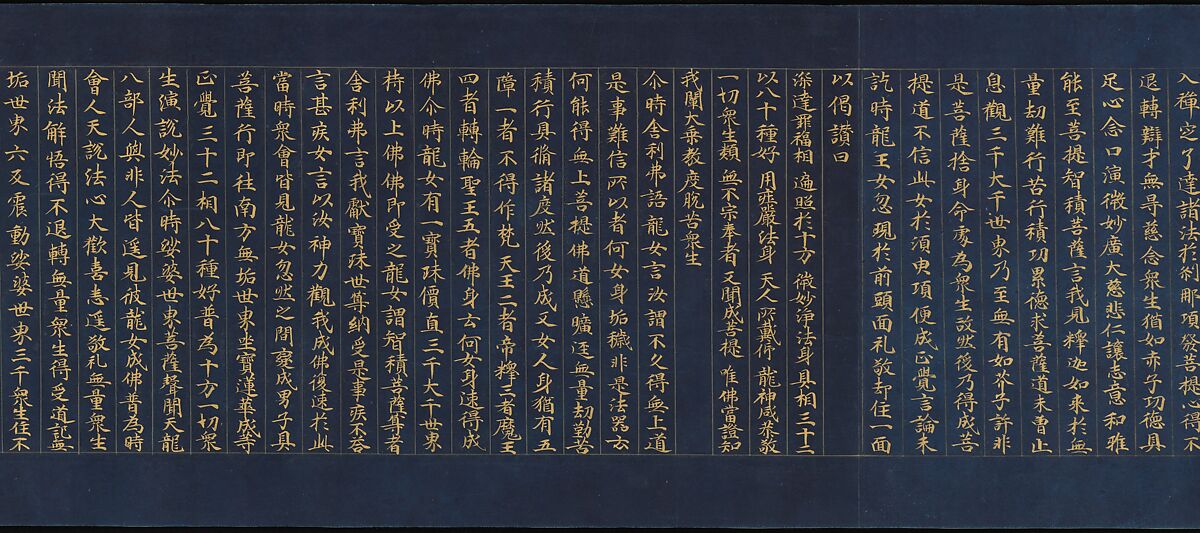 入禪定了達諸法於剎那頃發菩提心得不
退轉辯才無㝵慈念衆生猶如赤子功德具
足心念口演微妙廣大慈悲仁讓志意和雅
能至菩提智積菩薩言我見釋迦如来於無
量劫難行苦行積功累德求菩薩道未曽止
息觀三千大千世界乃至無有如芥子許非
是菩薩捨身命處為衆生故然後乃得成菩
提道不信此女於須臾項便成正覺言論未
訖時龍王女忽現於前頭面礼敬却住一面
以偈讃曰
深達罪福相 遍照於十方 微妙浄法身 具相三十二
以八十種好 用㽵嚴法身 天人所戴仰 龍神咸恭敬
一切衆生類 無不宗奉者 又聞成菩提 唯佛當證知
我闡大乗教 度脫苦衆生
尒時舍利弗語龍女言汝謂不久得無上道
是事難信所以者何女身垢穢非是法器云
何能得無上菩提佛道懸曠逕無量劫勤苦
積行具脩諸度然後乃成又女人身猶有五
障一者不得作梵天王二者帝釋三者魔王
四者轉輪聖王五者佛身云何女身速得成
佛尒時龍女有一寶珠價直三千大千世界
持以上佛佛即受之龍女謂智積菩薩尊者
舍利弗言我獻寶珠世尊納受是事疾不荅
言甚疾女言以汝神力觀我成佛復速於此
當時衆會皆見龍女忽然之間變成男子具
菩薩行即往南方無垢世界坐寶蓮華成等
正覺三十二相八十種好普為十方一切衆
生演說妙法尒時娑婆世界菩薩聲聞天龍
八部人與非人皆遥見彼龍女成佛普為時
會人天說法心大歡喜悉遥敬礼無量衆生
聞法解悟得不退轉無量衆生得受道記無
垢世界六反震動娑婆世界三千衆生住不